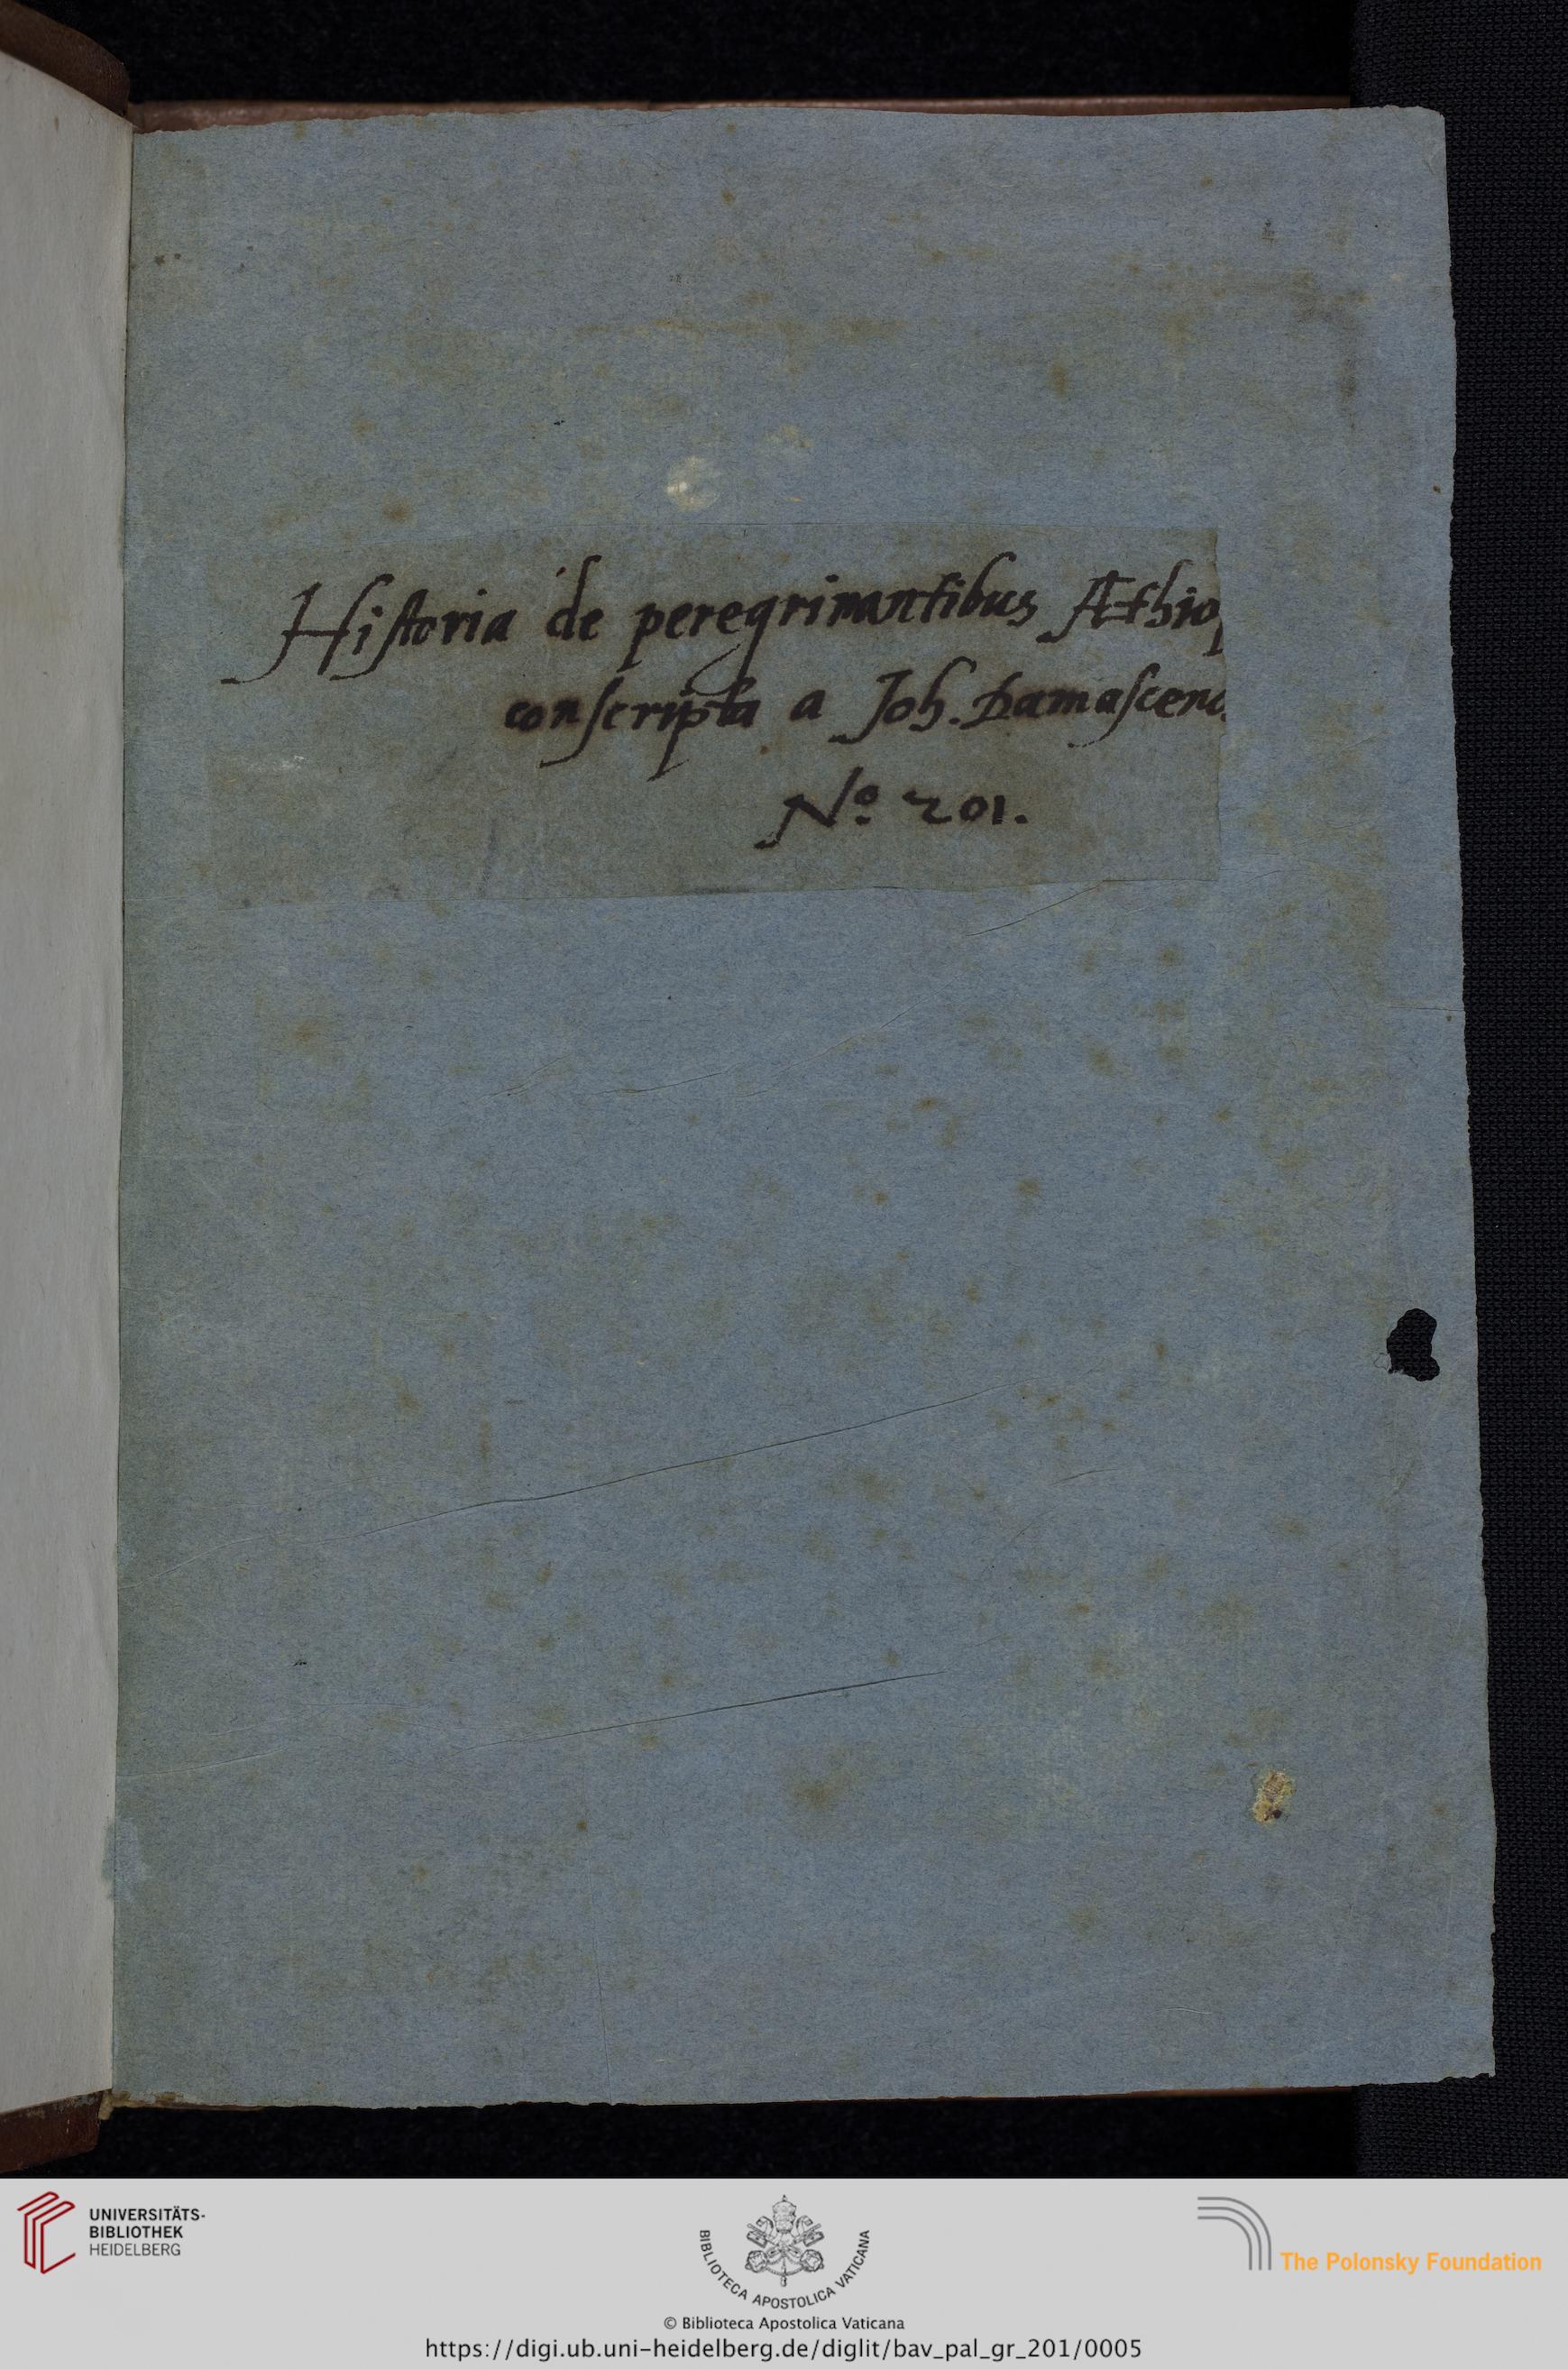 Hiſtoria de peregrinantibus Æthiop
conſcripta a Joh. Damaſceno
Nº. 201.
UNIVERSITÄTS-
BIBLIOTHEK
HEIDELBERG
BIBLIOTECA APOSTOLICA VATICANA
© Biblioteca Apostolica Vaticana
The Polonsky Foundation
https://digi.ub.uni-heidelberg.de/diglit/bav_pal_gr_201/0005